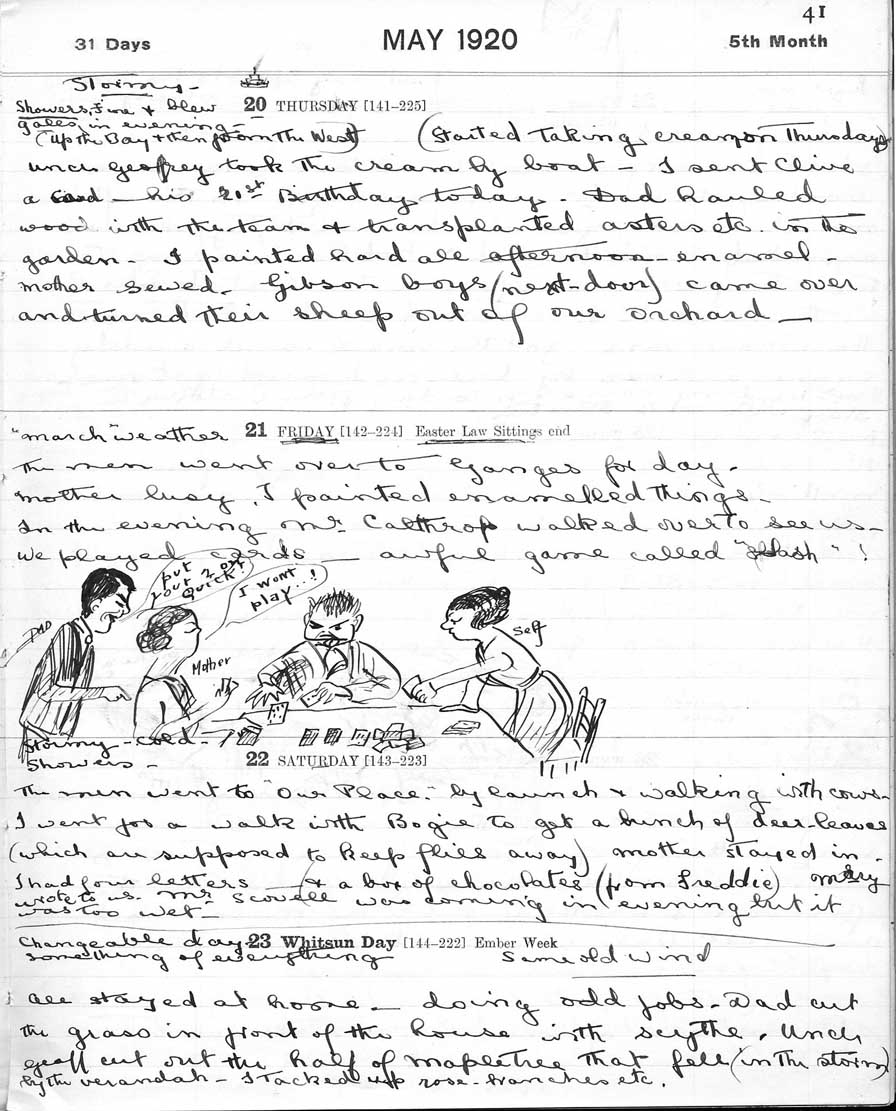 41
31 Days MAY 1920 5th Month
Stormy-
Showers, Fine & blew 20 THURSDAY [141–225]
gales in evening -
(up the Bay & then from the West) (Started taking cream on Thursday)
uncle Geoffrey took the cream by boat - I sent Clive
a card - his 21st Birthday today. Dad hauled
wood with the team & transplanted asters etc. in the
garden. I painted hard all afternoon - enamel -
mother sewed. Gibson boys (next-door) came over
and turned their sheep out of our orchard -
"March" weather 21 FRIDAY [142–224] Easter Law Sittings end
The men went over to Ganges for day.
mother busy, I painted enamelled things.
In the evening Mr. Calthrop walked over to see us -
We played cards - awful game called " "!
put your 2 out Quick!
I wont play...!
DAD
Mother
Self
Stormy - cold -
Showers - 22 SATURDAY [143–223]
The men went to "Our Place." by launch & walking with cows -
I went for a walk with Bogie to get a bunch of deer-leaves
(which are supposed to keep flies away) mother stayed in.
I had four letters - (& a box of chocolates (from Freddie) Mary
wrote to us. Mr. Scovell was coming in evening but it
was too wet -
Changeable day - 23 Whitsun Day [144–222] Ember Week
something of everything Same old wind
All stayed at home - doing odd jobs - Dad cut
the grass in front of the house with scythe. Uncle
Geoff cut out the half of maple tree that fell (in the storm)
by the verandah - I tacked up rose-branches etc.